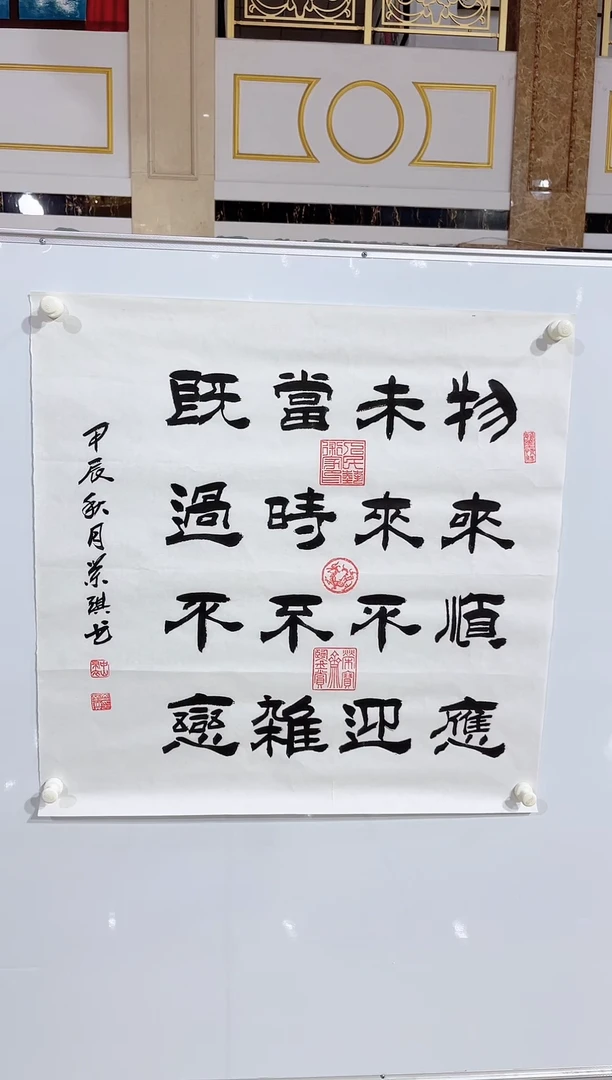 物來順應
未來不迎
當時不雜
既過不戀
甲辰秋月荣琪书